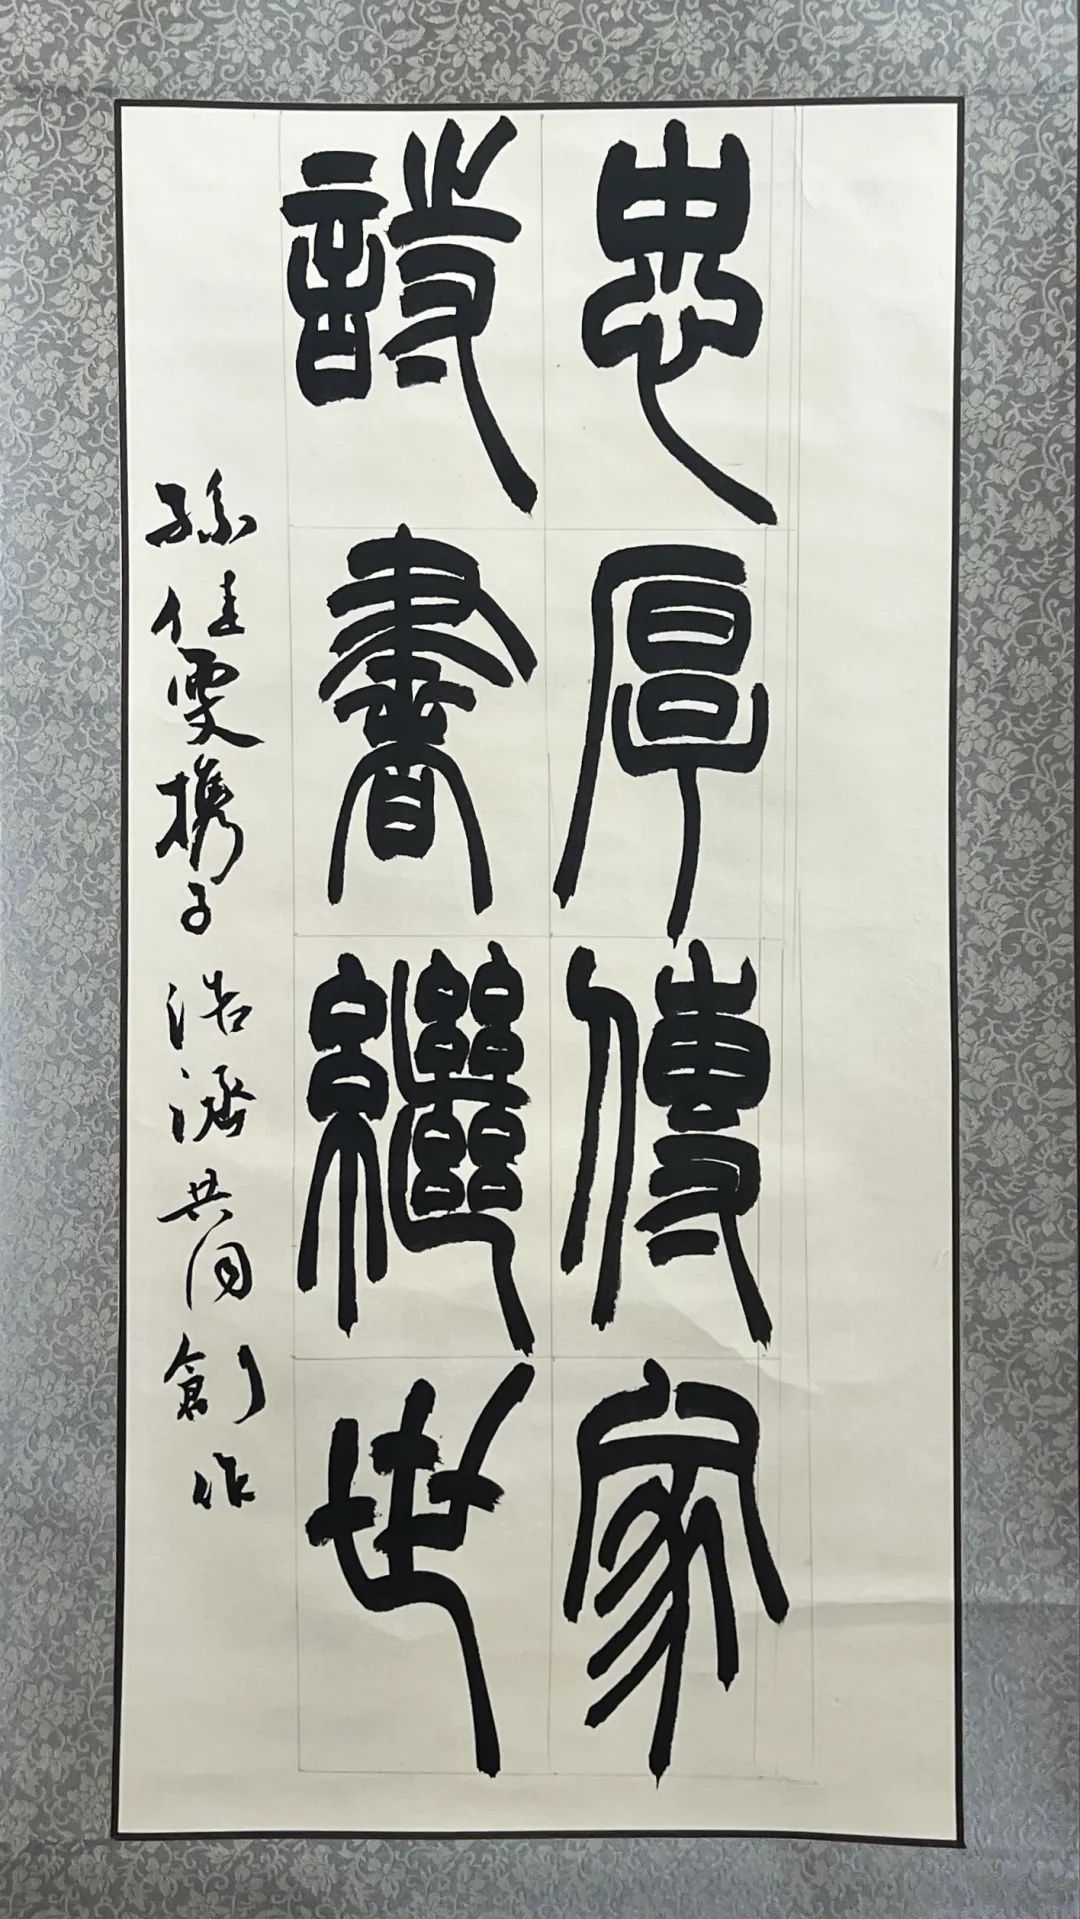 忠厚傳家
詩書繼世
孫佳雯携子浩濟共同創作